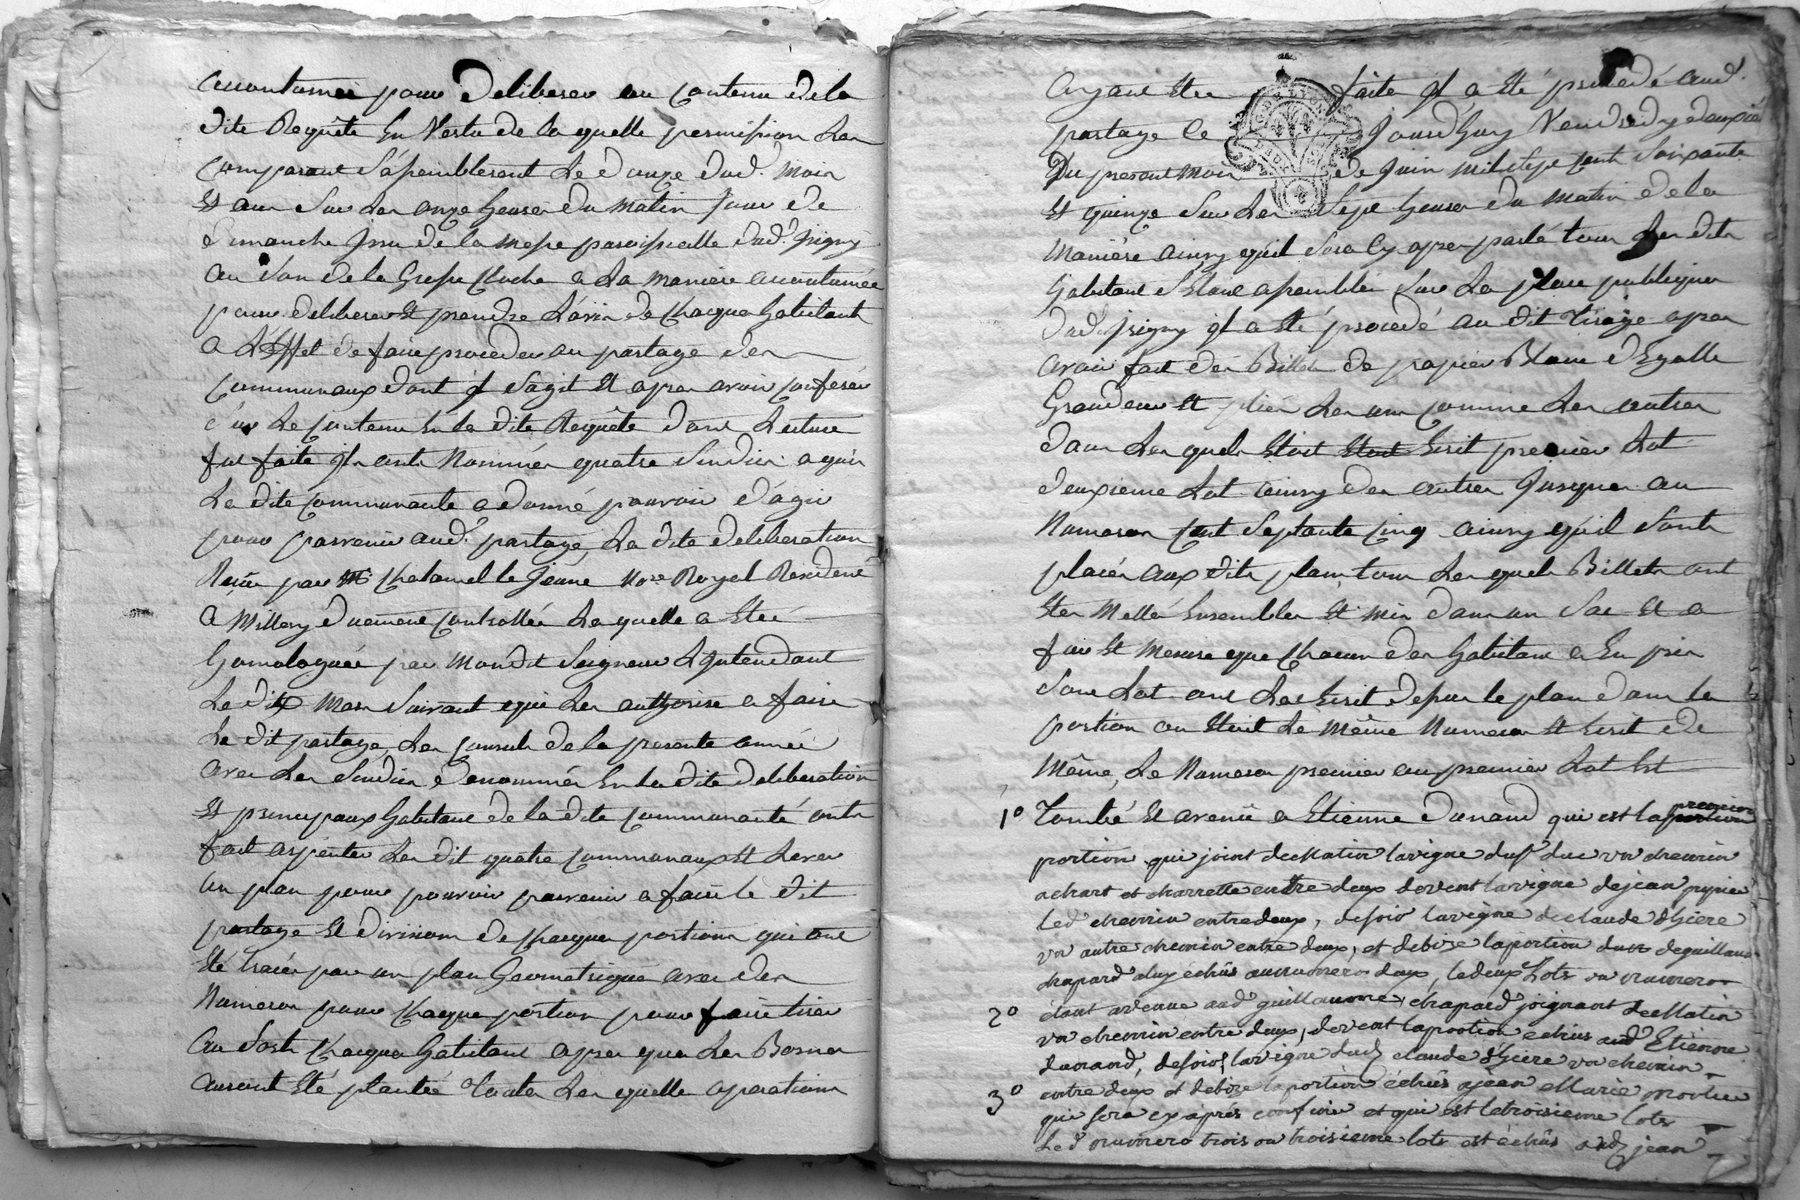 accoutumée pour deliberer au contenu de la
dite Requête En Vertu de la quelle permission Les
comparant s'assemblerent Le douze dud. mois
Et an Sur Les onze heures du matin Jour de
dimanche Issu de la messe paroissialle dud. Irigny
au son de la Grosse Cloche a La maniere accoutumée
pour deliberer Et prendre L'avis de Chaque habitants
a L'Effet de faire proceder au partage des
Communaux dont Il s'agit Et apres avoir conferer
sur Le Contenu En la dite Requête dont Lecture
fut faite Ils ont Nommés quatre sindics a qui
La dite Communauté a donné pouvoir d'agir
pour parvenir aud. partage, La dite deliberation
Reçue par Me Chatanel le Jeune Nore Royal Residant
a Millery duement controllée La quelle a Eté
homologuée par mondit Seigneur L'Intendant
Le dit mois suivant qui Les authorise a faire
Le dit partage, Les Consuls de la presente année
avec Les sindics denommés En la dite deliberation
Et principaux habitant de la dite communauté ont
fait arpenter Les dit quatre communaux Et Lever
un plan pour pouvoir parvenir a faire le dit
partage Et division de Chaque portions qui ont
Eté tracés par un plan Geometrique avec des
Numeros pour Chaque portion pour faire tirer
au Sort Chaque habitant apres que Les Bornes
auront Eté planté toutes Les quelle operations
DE LYON
ayant Eté faite Il a Eté procedé aud.
partage le Jourd'huy Vendredy
Du present mois de Juin mil sept cent soixante
Et quinze Sur Les Sept heures du matin de la
maniere ainsy qu'il sera Cy apres parlé tous Les dits
habitant s'Etant assemblés sur La place publique
dud. Irigny Il a Eté procedé au dit tirage apres
avoir fait des Billets de papier Blanc d'Egalle
Grandeur Et pliés Les uns comme Les autres
dans Les quels Etoit Etoit Ecrit premier Lot
deuxieme Lot ainsy des autres Jusques au
Numeros Cent Septante Cinq ainsy qu'il sont
placés aux dits plans tous Les quels Billets ont
Etés mellé Ensembles Et mis dans un Sac Et a
fur Et mesure que Chacun des habitant a En pris
son Lot ont L'as Ecrit dessus le plan dans la
portion ou Etoit Le même Numeros Et Ecrit de
même, Le Numeros premier ou premier Lot Est
1o Tombé Et avenü a Etienne Dunand qui est la premiere portion
portion qui joint de Matin la vigne dusr duc un chemin
a chart et charrette entre deux devent la vigne de jean
led chemin entre deux, de soir la vigne de claude d'hiere
un autre chemin entre deux, et de bize la portion dusr de guillaume
chapard aluy échüs au numero deux, le deux Lots ou numero
2o étant avenue aud guillaumne chapard joignant de Matin
un chemin entre deux, devent la portion échüs aud Etienne
dunand, de soir, la vigne dud claude d'hiere un chemin
entre deux et de bize la portion échüs a jean Marie mortier
3o qui sera cy aprés confiné et qui est le troisieme lots
Le d numero trois ou troisieme lots est échüs aud jean